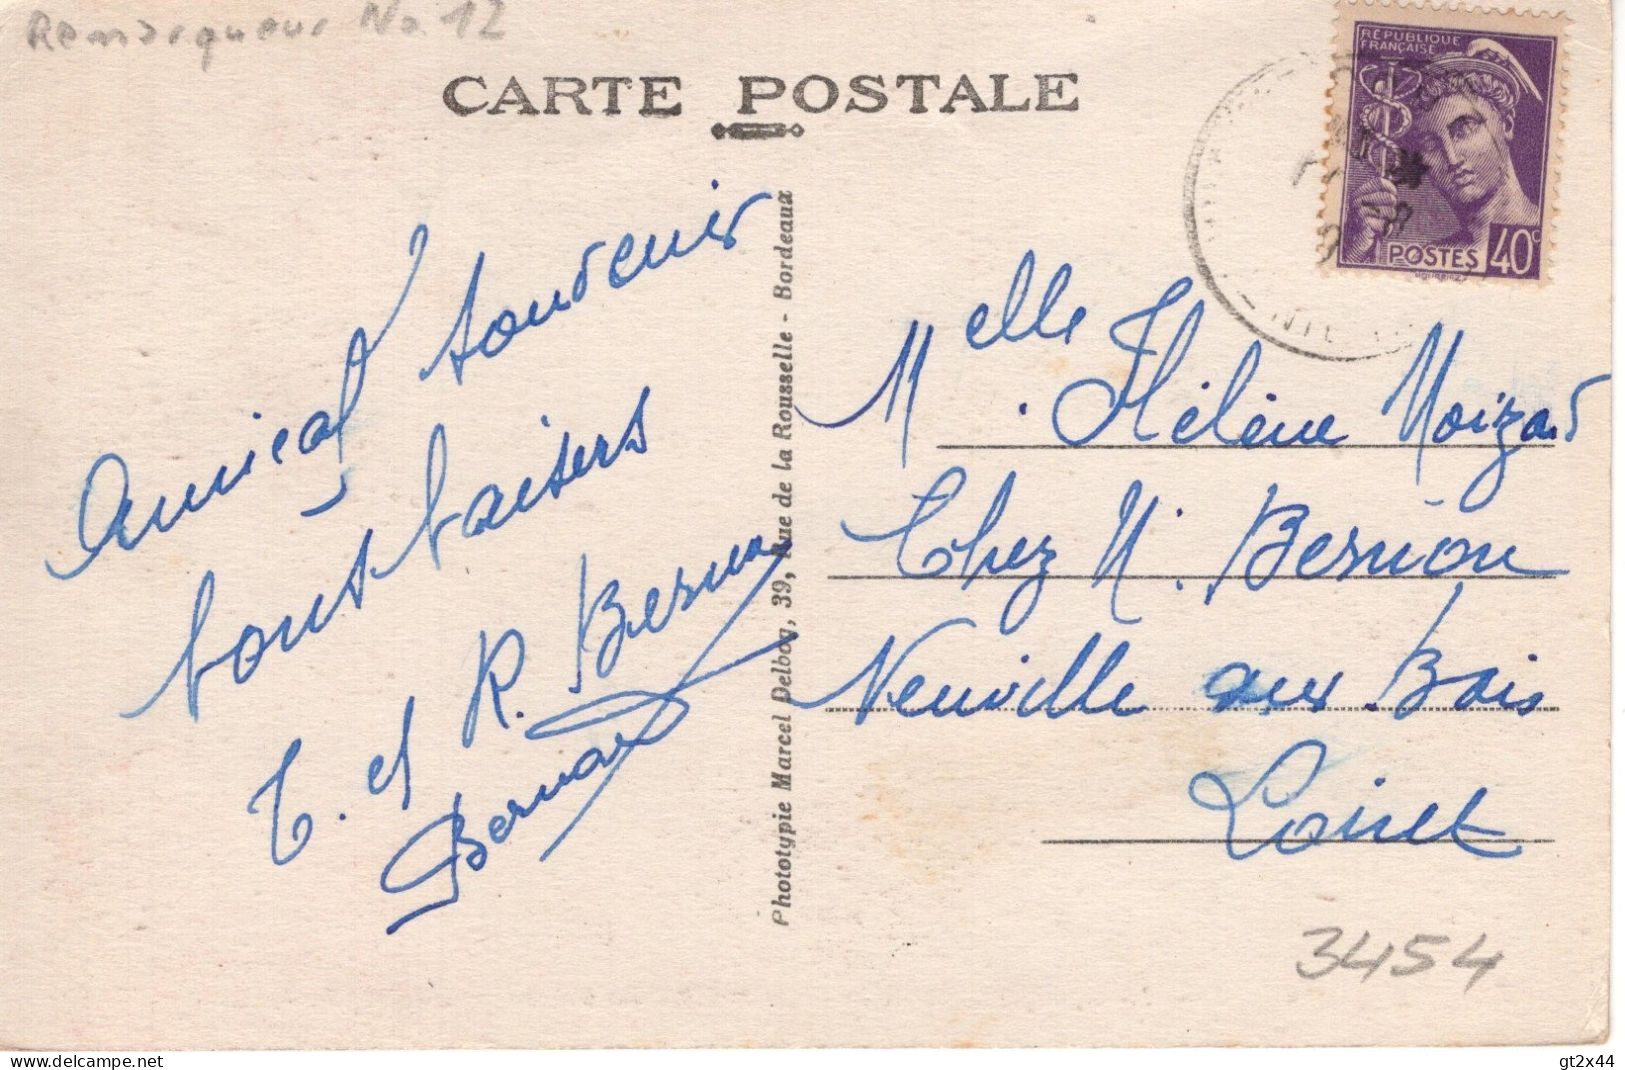 Remorqueur No. 12
CARTE POSTALE
RÉPUBLIQUE
FRANÇAISE
POSTES 40c
Amical souvenir
bons baisers
T. et R. Bernon
Bernon
Photographie Marcel Delboy, 39, Rue de la Rousselle - Bordeaux
Melle Hélène Moizar
Chez M. Bernon
Neuville aux Bois
Loiret
3454
delcampe.net
gt2x44